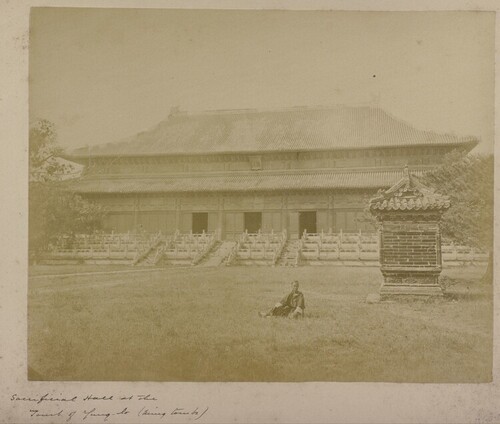 Sacrificial Hall at the
Tomb of Yung-lo (Ming tombs)